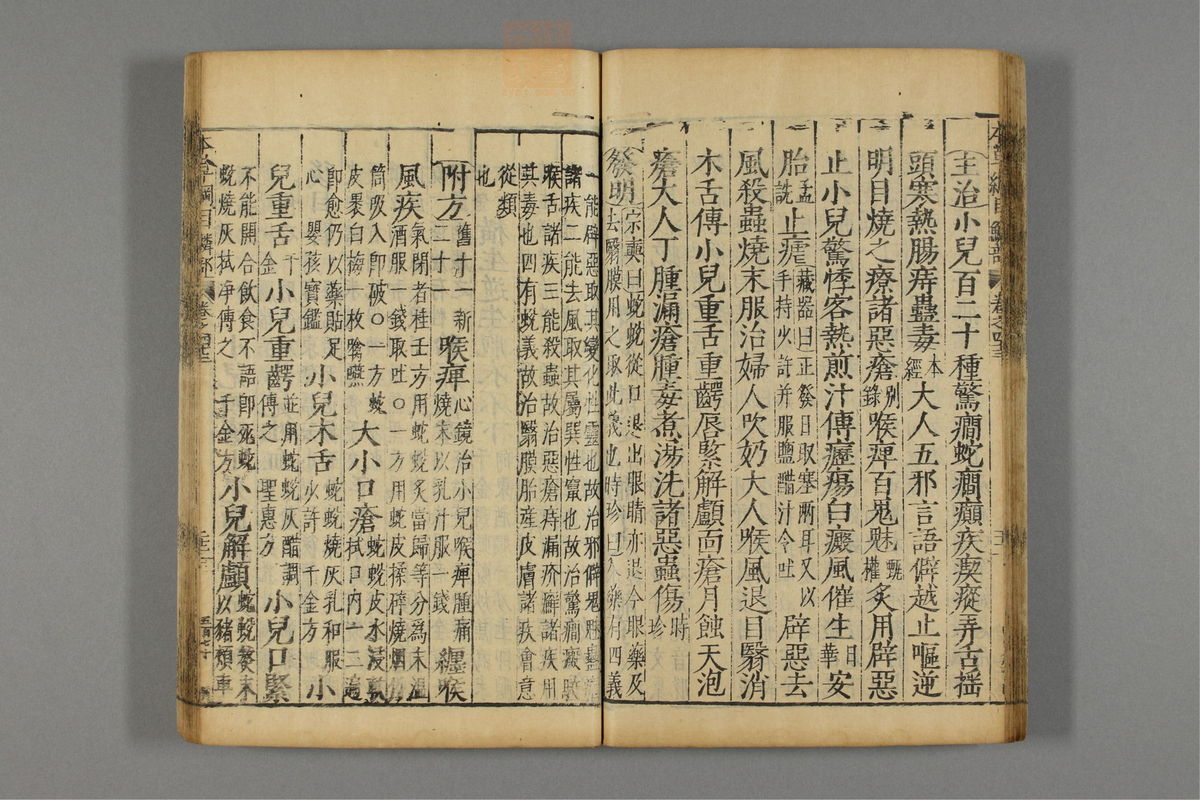 主治小兒百二十種驚癇蛇癇癲疾瘈瘲弄舌搖
頭寒熱腸痔蠱毒本經大人五邪言語僻越止嘔逆
明目燒之療諸惡瘡別錄喉痺百鬼魅甄權炙用辟惡
止小兒驚悸客熱煎汁傅癧瘍白癜風催生日華安
胎孟詵止瘧藏器曰正發日取塞兩耳又以手持少許并服鹽醋汁令吐辟惡去
風殺蟲燒末服治婦人吹奶大人喉風退目翳消
木舌傅小兒重舌重齶唇緊解顱面瘡月蝕天泡
瘡大人丁腫漏瘡腫毒煮湯洗諸惡蟲傷時珍
發明宗奭曰蛇蛻從口退出眼睛亦退今眼藥及去翳膜用之取此義也時珍曰入藥有四義
一能辟惡取其變化性靈也故治邪僻鬼魅蠱瘧
諸疾二能去風取其屬巽性竄也故治驚癇癜駁
喉舌諸疾三能殺蟲故治惡瘡痔漏疥癬諸疾用
其毒也四有蛻義故治翳膜胎產皮膚諸疾會意
從類
也
附方舊十一新二十喉痺心鏡治小兒喉痺腫痛燒末以乳汁服一錢纏喉
風疾氣閉者桂壬方用蛇蛻炙當歸等分爲末溫酒服一錢取吐○一方用蛇皮揉碎燒烟
筒吸入即破○一方蛇皮褁白梅一枚噙嚥大小口瘡蛇蛻皮水浸軟拭口内一二遍
即愈仍以藥貼足心嬰孩寶鑑小兒木舌蛇蛻燒灰乳和服少許千金方小
兒重舌千金小兒重齶並用蛇蛻灰醋調傅之聖惠方小兒口緊
不能開合飲食不語即死蛇蛻燒灰拭淨傅之千金方小兒解顱蛇蛻熬末以豬頰車